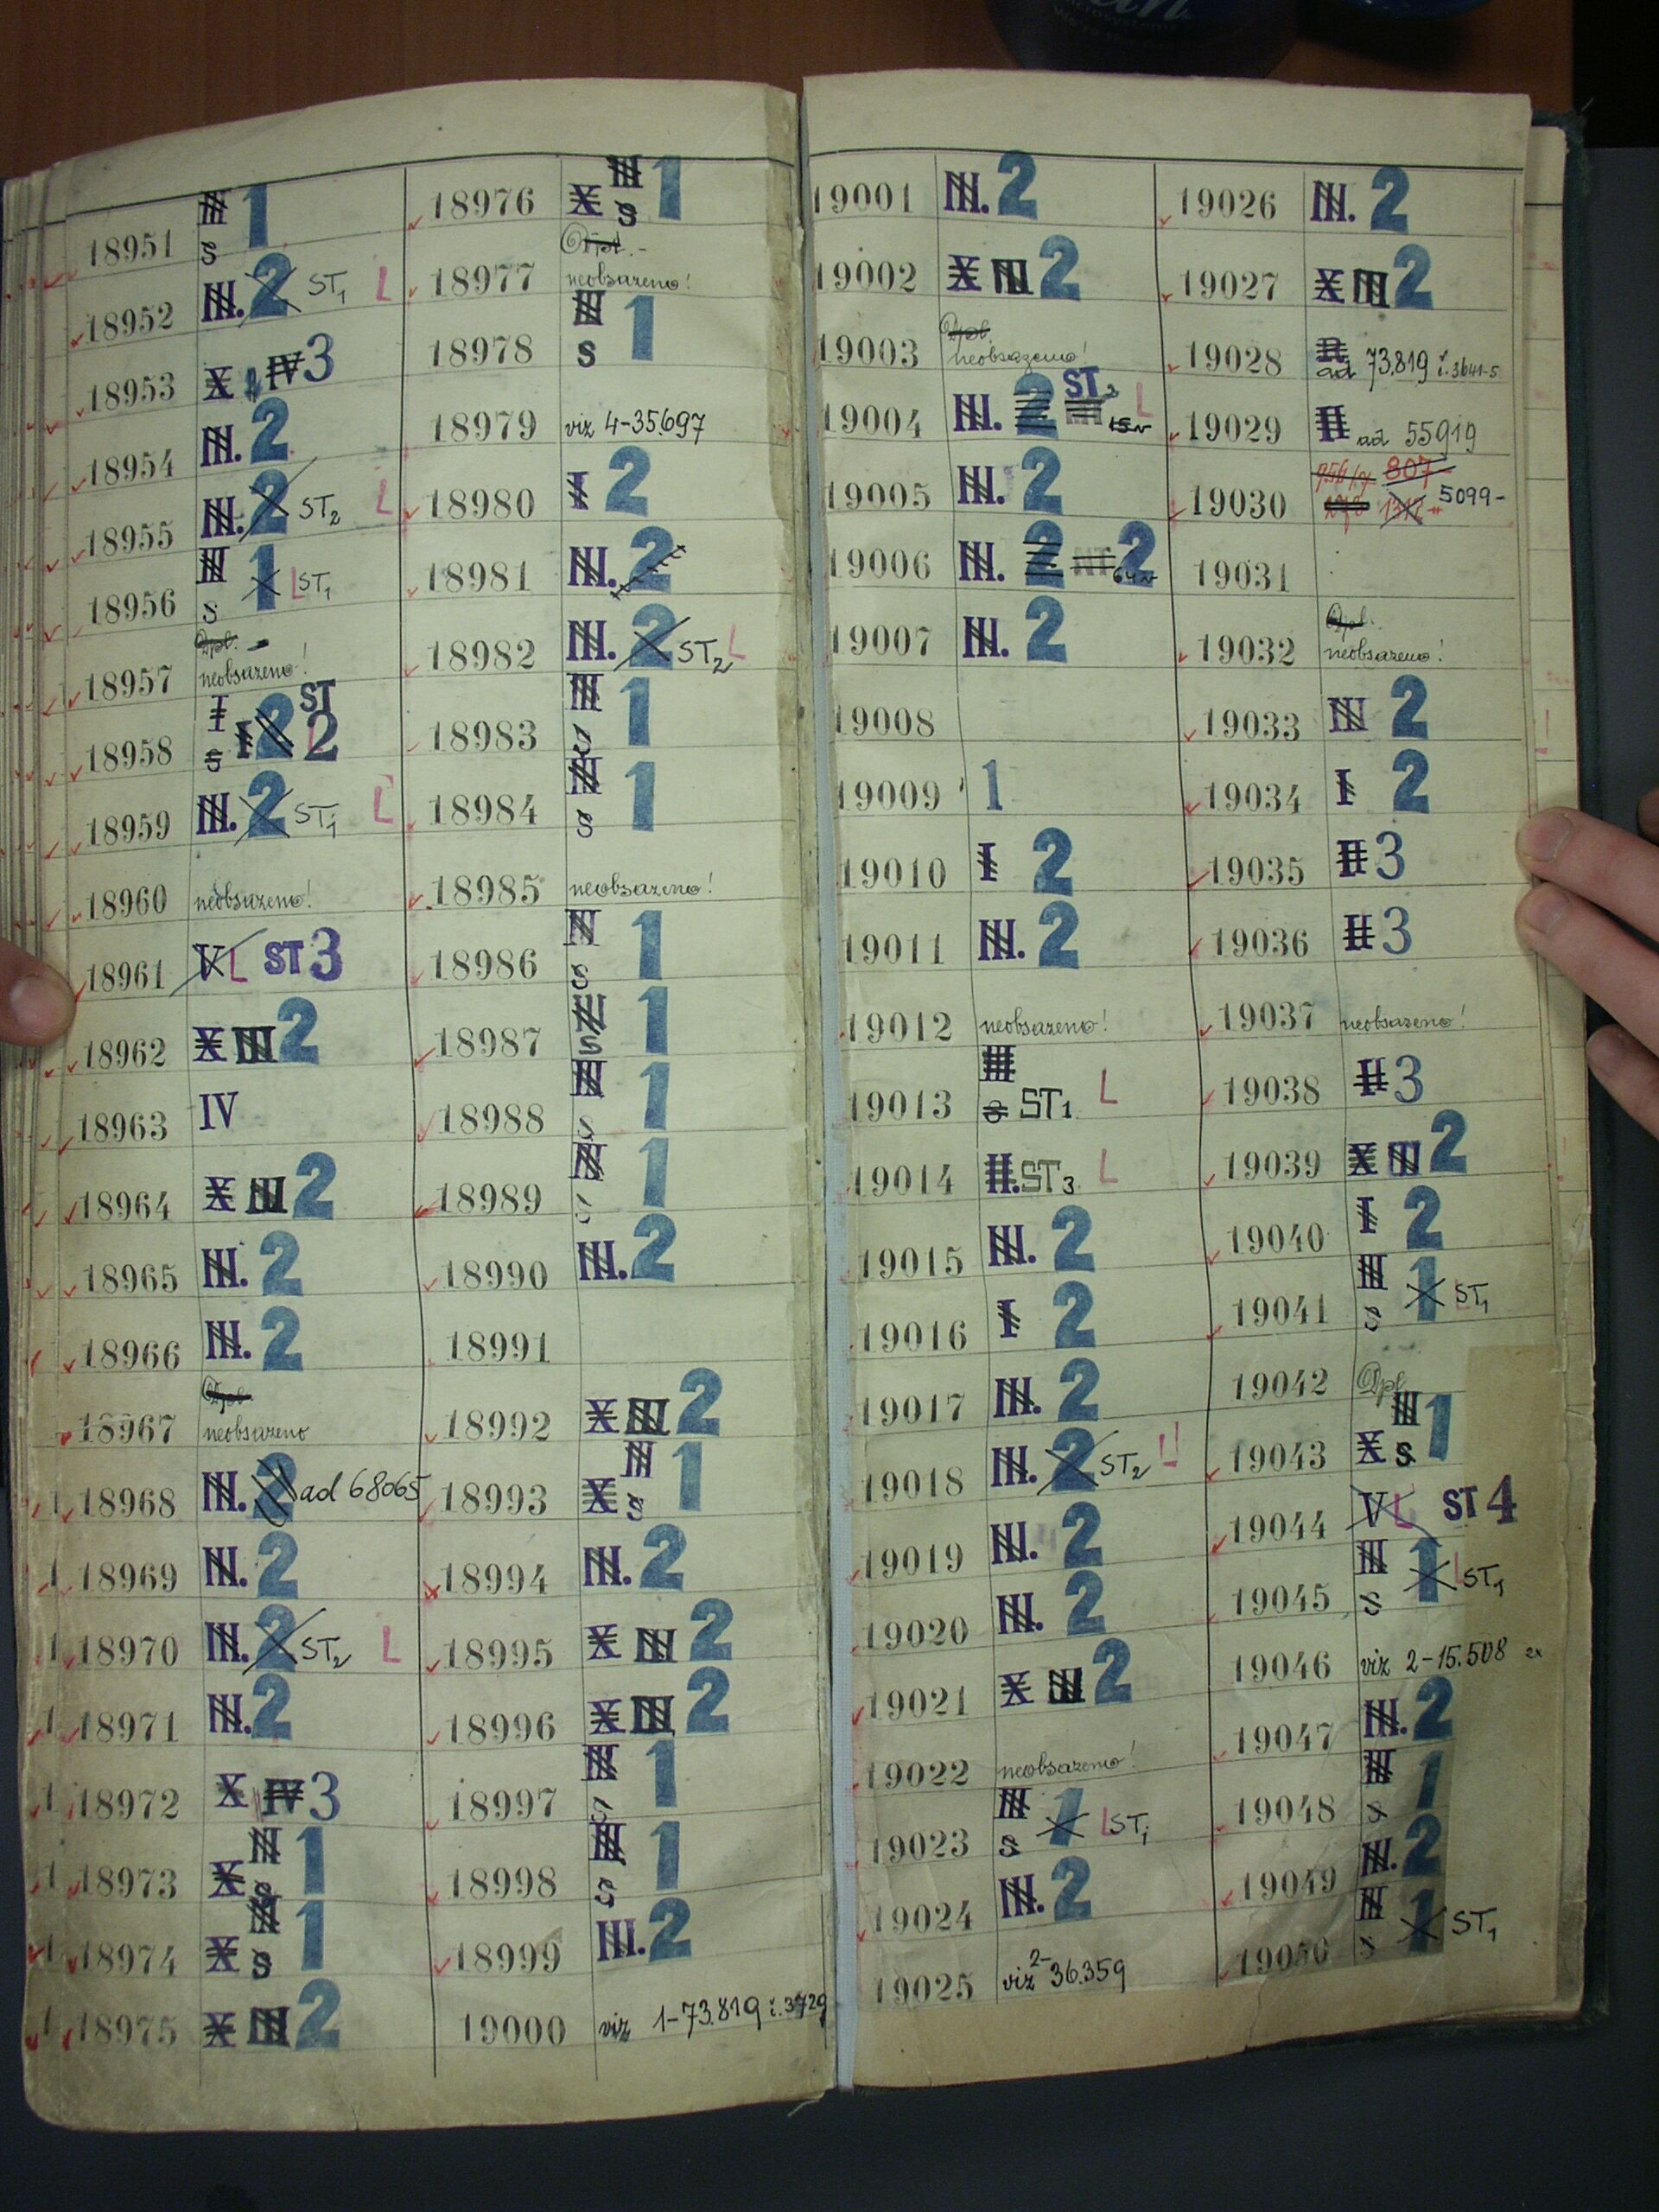 18951 III 1 S
18952 III. 2 ST1 L
18953 X IV 3
18954 III. 2
18955 III. 2 ST2 L
18956 III 1 S L ST1
18957 Dpl. neobsazeno!
18958 I S I 2 ST 2
18959 III. 2 ST1 L
18960 neobsazeno!
18961 V L ST 3
18962 X III 2
18963 IV
18964 X III 2
18965 III. 2
18966 III. 2
18967 Dpl. neobsazeno
18968 III. 2 ad 68065
18969 III. 2
18970 III. 2 ST2 L
18971 III. 2
18972 X IV 3
18973 X III S 1
18974 X III S 1
18975 X III 2
18976 X III S 1
18977 Dpl. - neobsazeno!
18978 III S 1
18979 viz 4-35.697
18980 I 2
18981 III. 2
18982 III. 2 ST2 L
18983 III S 1
18984 III S 1
18985 neobsazeno!
18986 III S 1
18987 III S 1
18988 III S 1
18989 III S 1
18990 III. 2
18991
18992 X III 2
18993 X III S 1
18994 III. 2
18995 X III 2
18996 X III 2
18997 III S 1
18998 III S 1
18999 III. 2
19000 viz 1-73.819 č. 3729
19001 III. 2
19002 X III 2
19003 Dpl. neobsazeno!
19004 III. 2 ST L
19005 III. 2
19006 III. 2 2
19007 III. 2
19008
19009 1
19010 I 2
19011 III. 2
19012 neobsazeno!
19013 III S ST1 L
19014 II. ST3 L
19015 III. 2
19016 I 2
19017 III. 2
19018 III. 2 ST2 L
19019 III. 2
19020 III. 2
19021 X III 2
19022 neobsazeno!
19023 III S 1 L ST1
19024 III. 2
19025 viz 2-36.359
19026 III. 2
19027 X III 2
19028 ad 73.819 č. 3641-5
19029 II ad 55919
19030 807 5099-
19031
19032 Dpl. neobsazeno!
19033 III 2
19034 I 2
19035 II 3
19036 II 3
19037 neobsazeno!
19038 II 3
19039 X III 2
19040 I 2
19041 III S 1 L ST1
19042 Dpl.
19043 X III S 1
19044 V L ST 4
19045 III S 1 L ST1
19046 viz 2-15.508
19047 III. 2
19048 III S 1
19049 III. 2
19050 III S 1 ST1